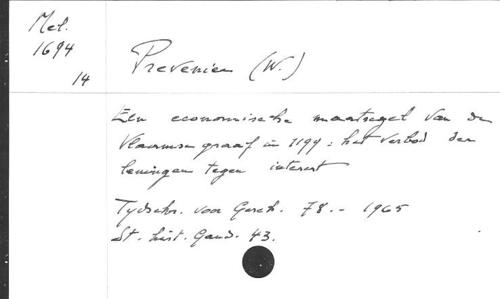 Mel.
1694
14
Prevenier (W.)
Een economische maatregel van de
Vlaamse graaf in 1199 : het verbod der
leningen tegen interest
Tydschr. voor Gesch. 78.- 1965
St. hist. Gand. 43.